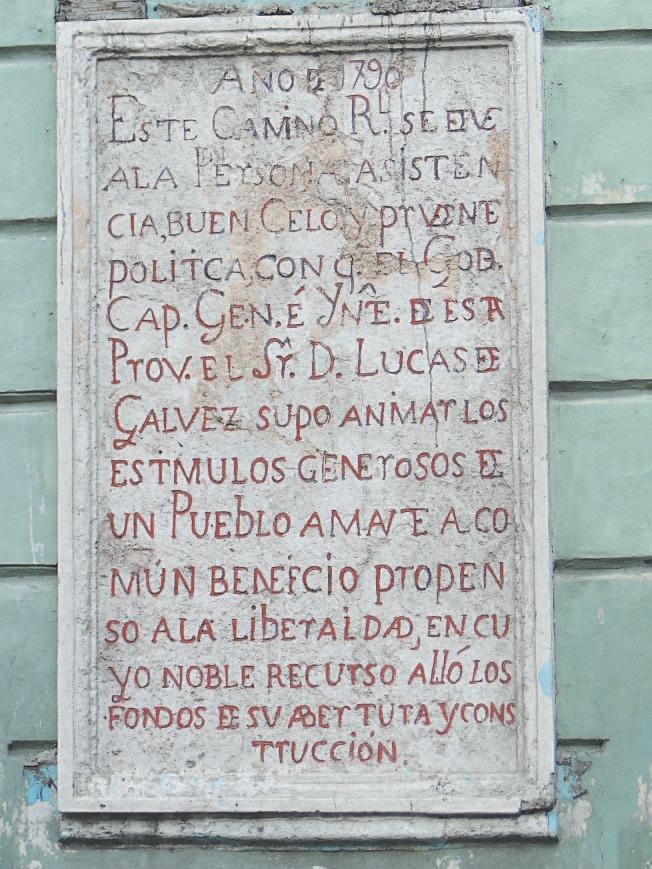 AÑO DE 1790
ESTE CAMINO Rl. SE DEVE
ALA PERSONA ASISTEN
CIA, BUEN CELO Y PRUDENTE
POLITICA, CON Q. EL GOD.
CAP. GEN. É YNTE. DE ESTA
PROV. EL Sr. D. LUCAS DE
GALVEZ SUPO ANIMAR LOS
ESTIMULOS GENEROSOS DE
UN PUEBLO AMANTE A CO
MÚN BENEFICIO PROPEN
SO ALA LIBERALIDAD, EN CU
YO NOBLE RECURSO ALLÓ LOS
FONDOS DE SU ABERTURA Y CONS
TRUCCIÓN.